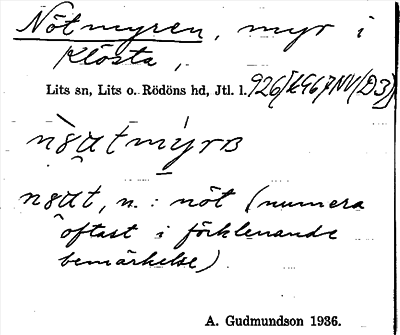 Nötmyren, myr i
Klösta,
Lits sn, Lits o. Rödöns hd, Jtl. l. 926/
nøatmyrʙ
nøat, n. : nöt (numera
oftast i förklenande
bemärkelse).
A. Gudmundson 1936.